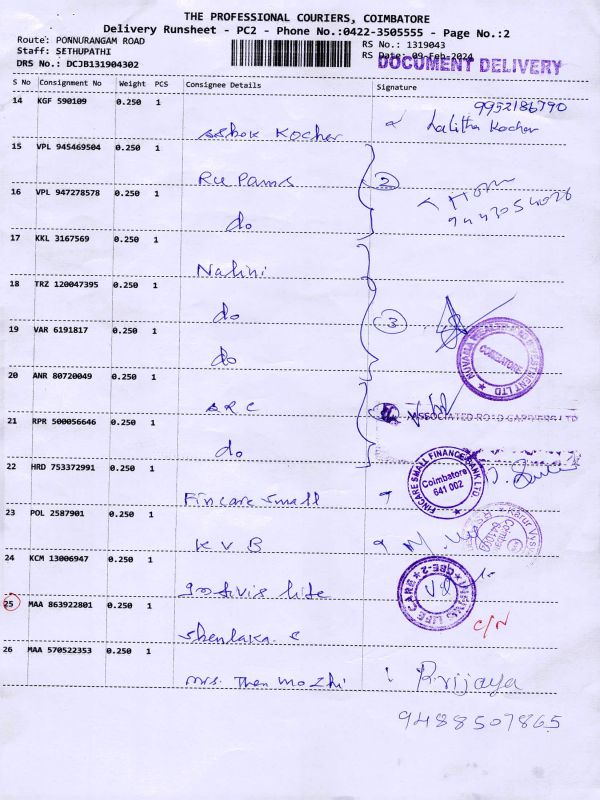 THE PROFESSIONAL COURIERS, COIMBATORE
Delivery Runsheet - PC2 - Phone No.:0422-3505555 - Page No.:2
Route: PONNURANGAM ROAD
RS No.: 1319043
Staff: SETHUPATHI
RS Date: 09-Feb-2024
DRS No.: DCJB131904302
DOCUMENT DELIVERY
S No Consignment No Weight PCS Consignee Details Signature
14 KGF 590109 0.250 1
9952186790
Ashok Kocher Lalitha Kocher
15 VPL 945469504 0.250 1
Ru Pams 2
16 VPL 947278578 0.250 1
do
17 KKL 3167569 0.250 1
Nalini
18 TRZ 120047395 0.250 1
do 3
19 VAR 6191817 0.250 1
do
COIMBATORE
20 ANR 80720049 0.250 1
ARC
ASSOCIATED ROAD CARRIERS LTD
21 RPR 500056646 0.250 1
do
22 HRD 753372991 0.250 1
FINCARE SMALL FINANCE BANK LTD
Coimbatore
641 002
Fincare Small
23 POL 2587901 0.250 1
Karur Vysya
KVB
24 KCM 13006947 0.250 1
LIFE CARE CBE-2
life
25 MAA 863922801 0.250 1
C/N
26 MAA 570522353 0.250 1
Mrs. Then Mozhi : P. Vijaya
9488507865